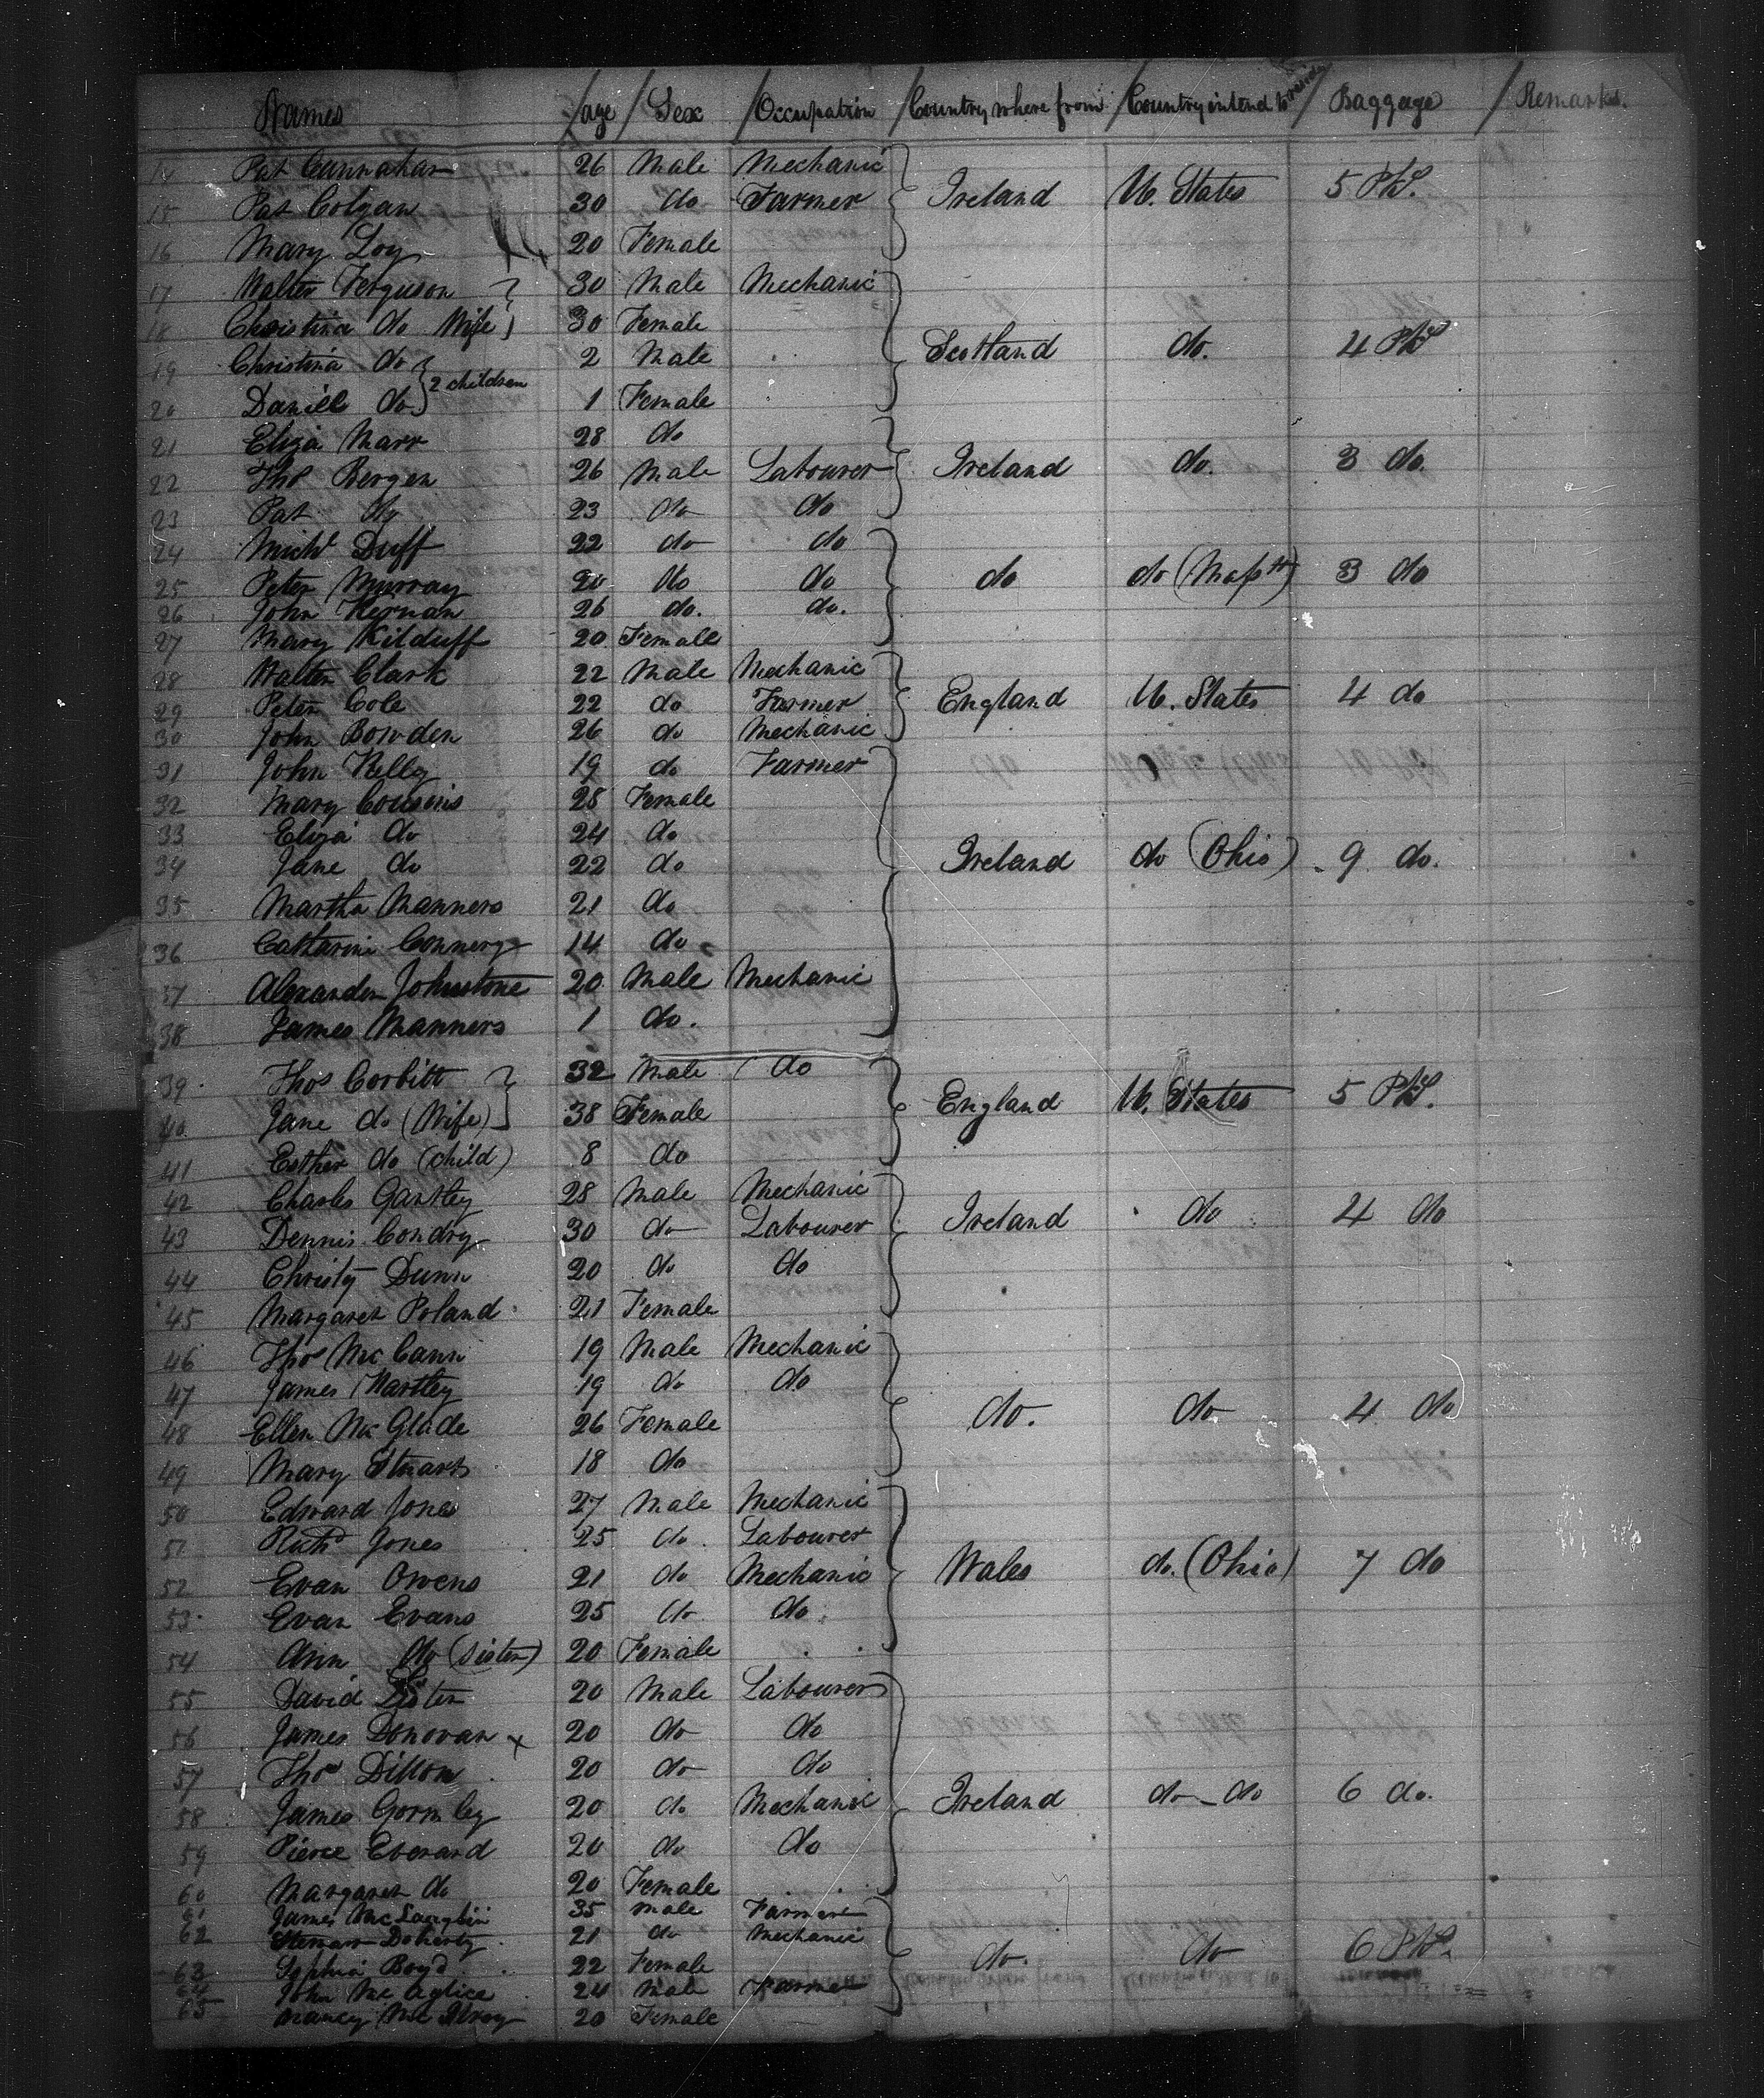 Names / age / Sex / Occupation / Country where from / Country intend to reside / Baggage / Remarks.
14 Pat Cannahan 26 Male Mechanic
15 Pat Colgan 30 do Farmer Ireland U. States 5 Pks.
16 Mary Loy 20 Female
17 Walter Ferguson 30 Male Mechanic
18 Christina do Wife 30 Female
19 Christina do 2 Male Scotland do. 4 Pks
2 children
20 Daniel do 1 Female
21 Eliza Marr 28 do
22 Thos Bergen 26 Male Labourer Ireland do. 3 do.
23 Pat do 23 do do
24 Michl Duff 22 do do
25 Peter Murray 20 do do do do (Masstt) 3 do
26 John Kernan 26 do. do.
27 Mary Kilduff 20 Female
28 Walter Clark 22 Male Mechanic
29 Peter Cole 22 do Farmer England U. States 4 do
30 John Bowden 26 do Mechanic
31 John Kelly 19 do Farmer
32 Mary Cousins 28 Female
33 Eliza do 24 do
34 Jane do 22 do Ireland do (Ohio) 9 do.
35 Martha Manners 21 do
36 Catharine Connery 14 do
37 Alexander Johnstone 20 Male Mechanic
38 James Manners 1 do.
39 Thos Corbitt 32 Male do
40 Jane do (Wife) 38 Female England U. States 5 Pks.
41 Esther do (child) 8 do
42 Charles Gantley 28 Male Mechanic
43 Dennis Condry 30 do Labourer Ireland do 4 do
44 Christy Dunn 20 do do
45 Margaret Poland 21 Female
46 Thos McCann 19 Male Mechanic
47 James Hartley 19 do do
48 Ellen McGlade 26 Female do. do 4 do
49 Mary Stuart 18 do
50 Edward Jones 27 Male Mechanic
51 Richd Jones 25 do Labourer
52 Evan Owens 21 do Mechanic Wales do. (Ohio) 7 do
53 Evan Evans 25 do do
54 Ann do (sister) 20 Female
55 David Lister 20 Male Labourer
56 James Donovan x 20 do do
57 Thos Dillon 20 do do
58 James Gormley 20 do Mechanic Ireland do - do 6 do.
59 Pierce Eberard 20 do do
60 Margaret do 20 Female
61 James McLaughlin 35 Male Farmer
62 Doherty 21 do Mechanic
63 Sophia Boyd 22 Female do. do 6 Pks.
64 John 24 Male Farmer
65 Nancy McIlroy 20 Female